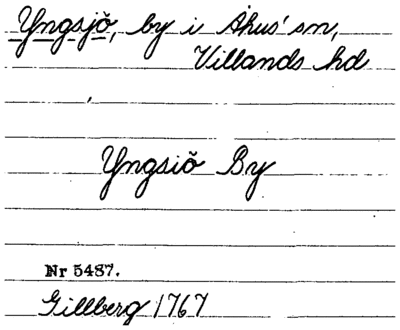 Yngsjö, by i Åhus' sn,
Villands hd
Yngsiö By
Nr 5487.
Gillberg 1767